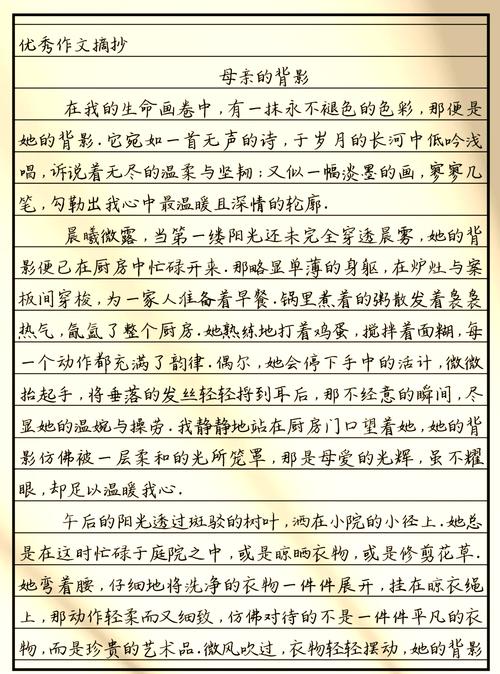 优秀作文摘抄
母亲的背影
在我的生命画卷中,有一抹永不褪色的色彩,那便是
她的背影.它宛如一首无声的诗,于岁月的长河中低吟浅
唱,诉说着无尽的温柔与坚韧;又似一幅淡墨的画,寥寥几
笔,勾勒出我心中最温暖且深情的轮廓.
晨曦微露,当第一缕阳光还未完全穿透晨雾,她的背
影便已在厨房中忙碌开来.那略显单薄的身躯,在炉灶与案
板间穿梭,为一家人准备着早餐.锅里煮着的粥散发着袅袅
热气,氤氲了整个厨房.她熟练地打着鸡蛋,搅拌着面糊,每
一个动作都充满了韵律.偶尔,她会停下手中的活计,微微
抬起手,将垂落的发丝轻轻捋到耳后,那不经意的瞬间,尽
显她的温婉与操劳.我静静地站在厨房门口望着她,她的背
影仿佛被一层柔和的光所笼罩,那是母爱的光辉,虽不耀
眼,却足以温暖我心.
午后的阳光透过斑驳的树叶,洒在小院的小径上.她总
是在这时忙碌于庭院之中,或是晾晒衣物,或是修剪花草.
她弯着腰,仔细地将洗净的衣物一件件展开,挂在晾衣绳
上,那动作轻柔而又细致,仿佛对待的不是一件件平凡的衣
物,而是珍贵的艺术品.微风吹过,衣物轻轻摆动,她的背影